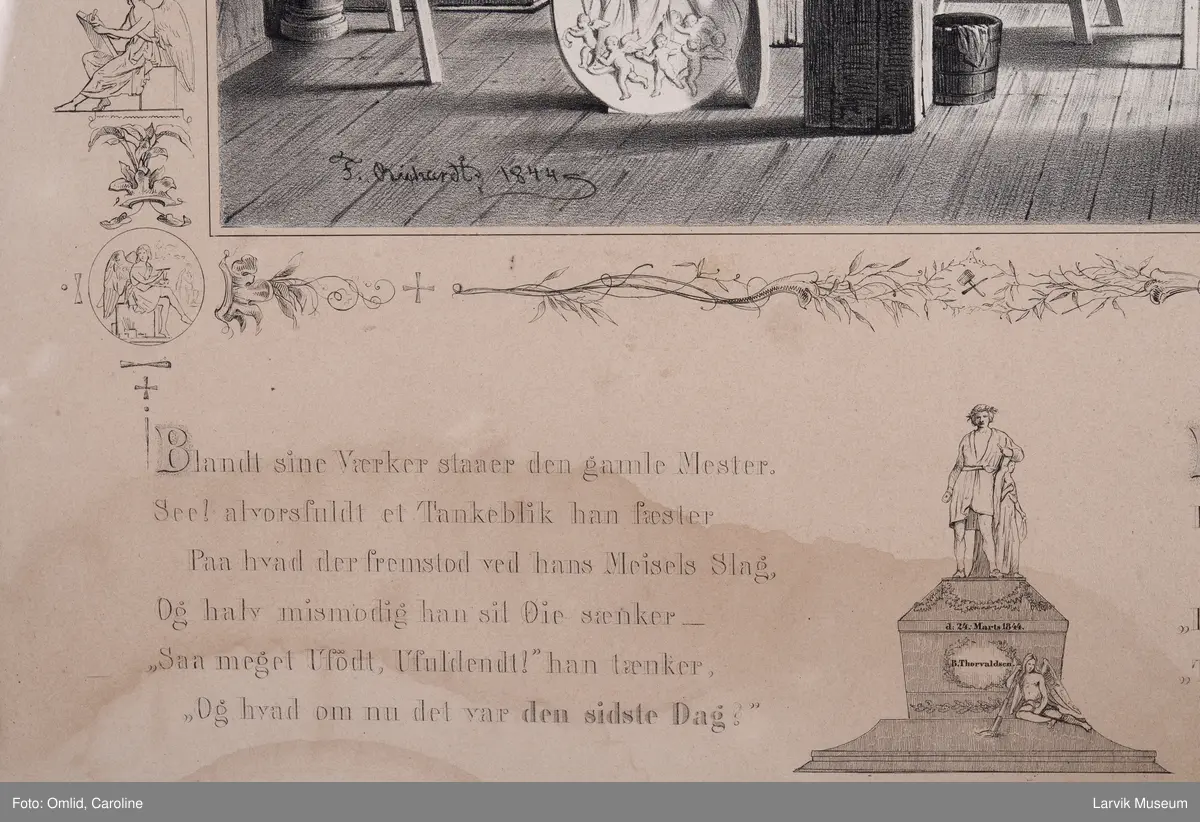 F. Richardt, 1844
Blandt sine Værker staaer den gamle Mester.
See! alvorsfuldt et Tankeblik han fæster
Paa hvad der fremstod ved hans Meisels Slag,
Og halv mismodig han sit Øie sænker —
„Saa meget Ufödt, Ufuldendt!” han tænker,
„Og hvad om nu det var den sidste Dag?”
d: 24. Marts 1844.
B. Thorvaldsen.
Foto: Omlid, Caroline
Larvik Museum